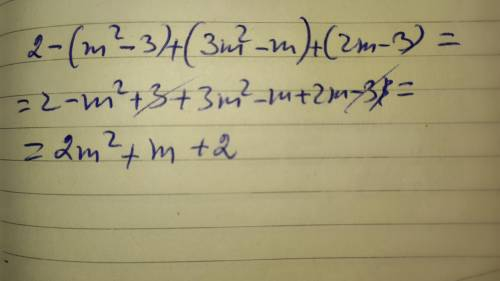 2-(m²-3)+(3m²-m)+(2m-3)=
=2-m²+3+3m²-m+2m-3=
=2m²+m+2